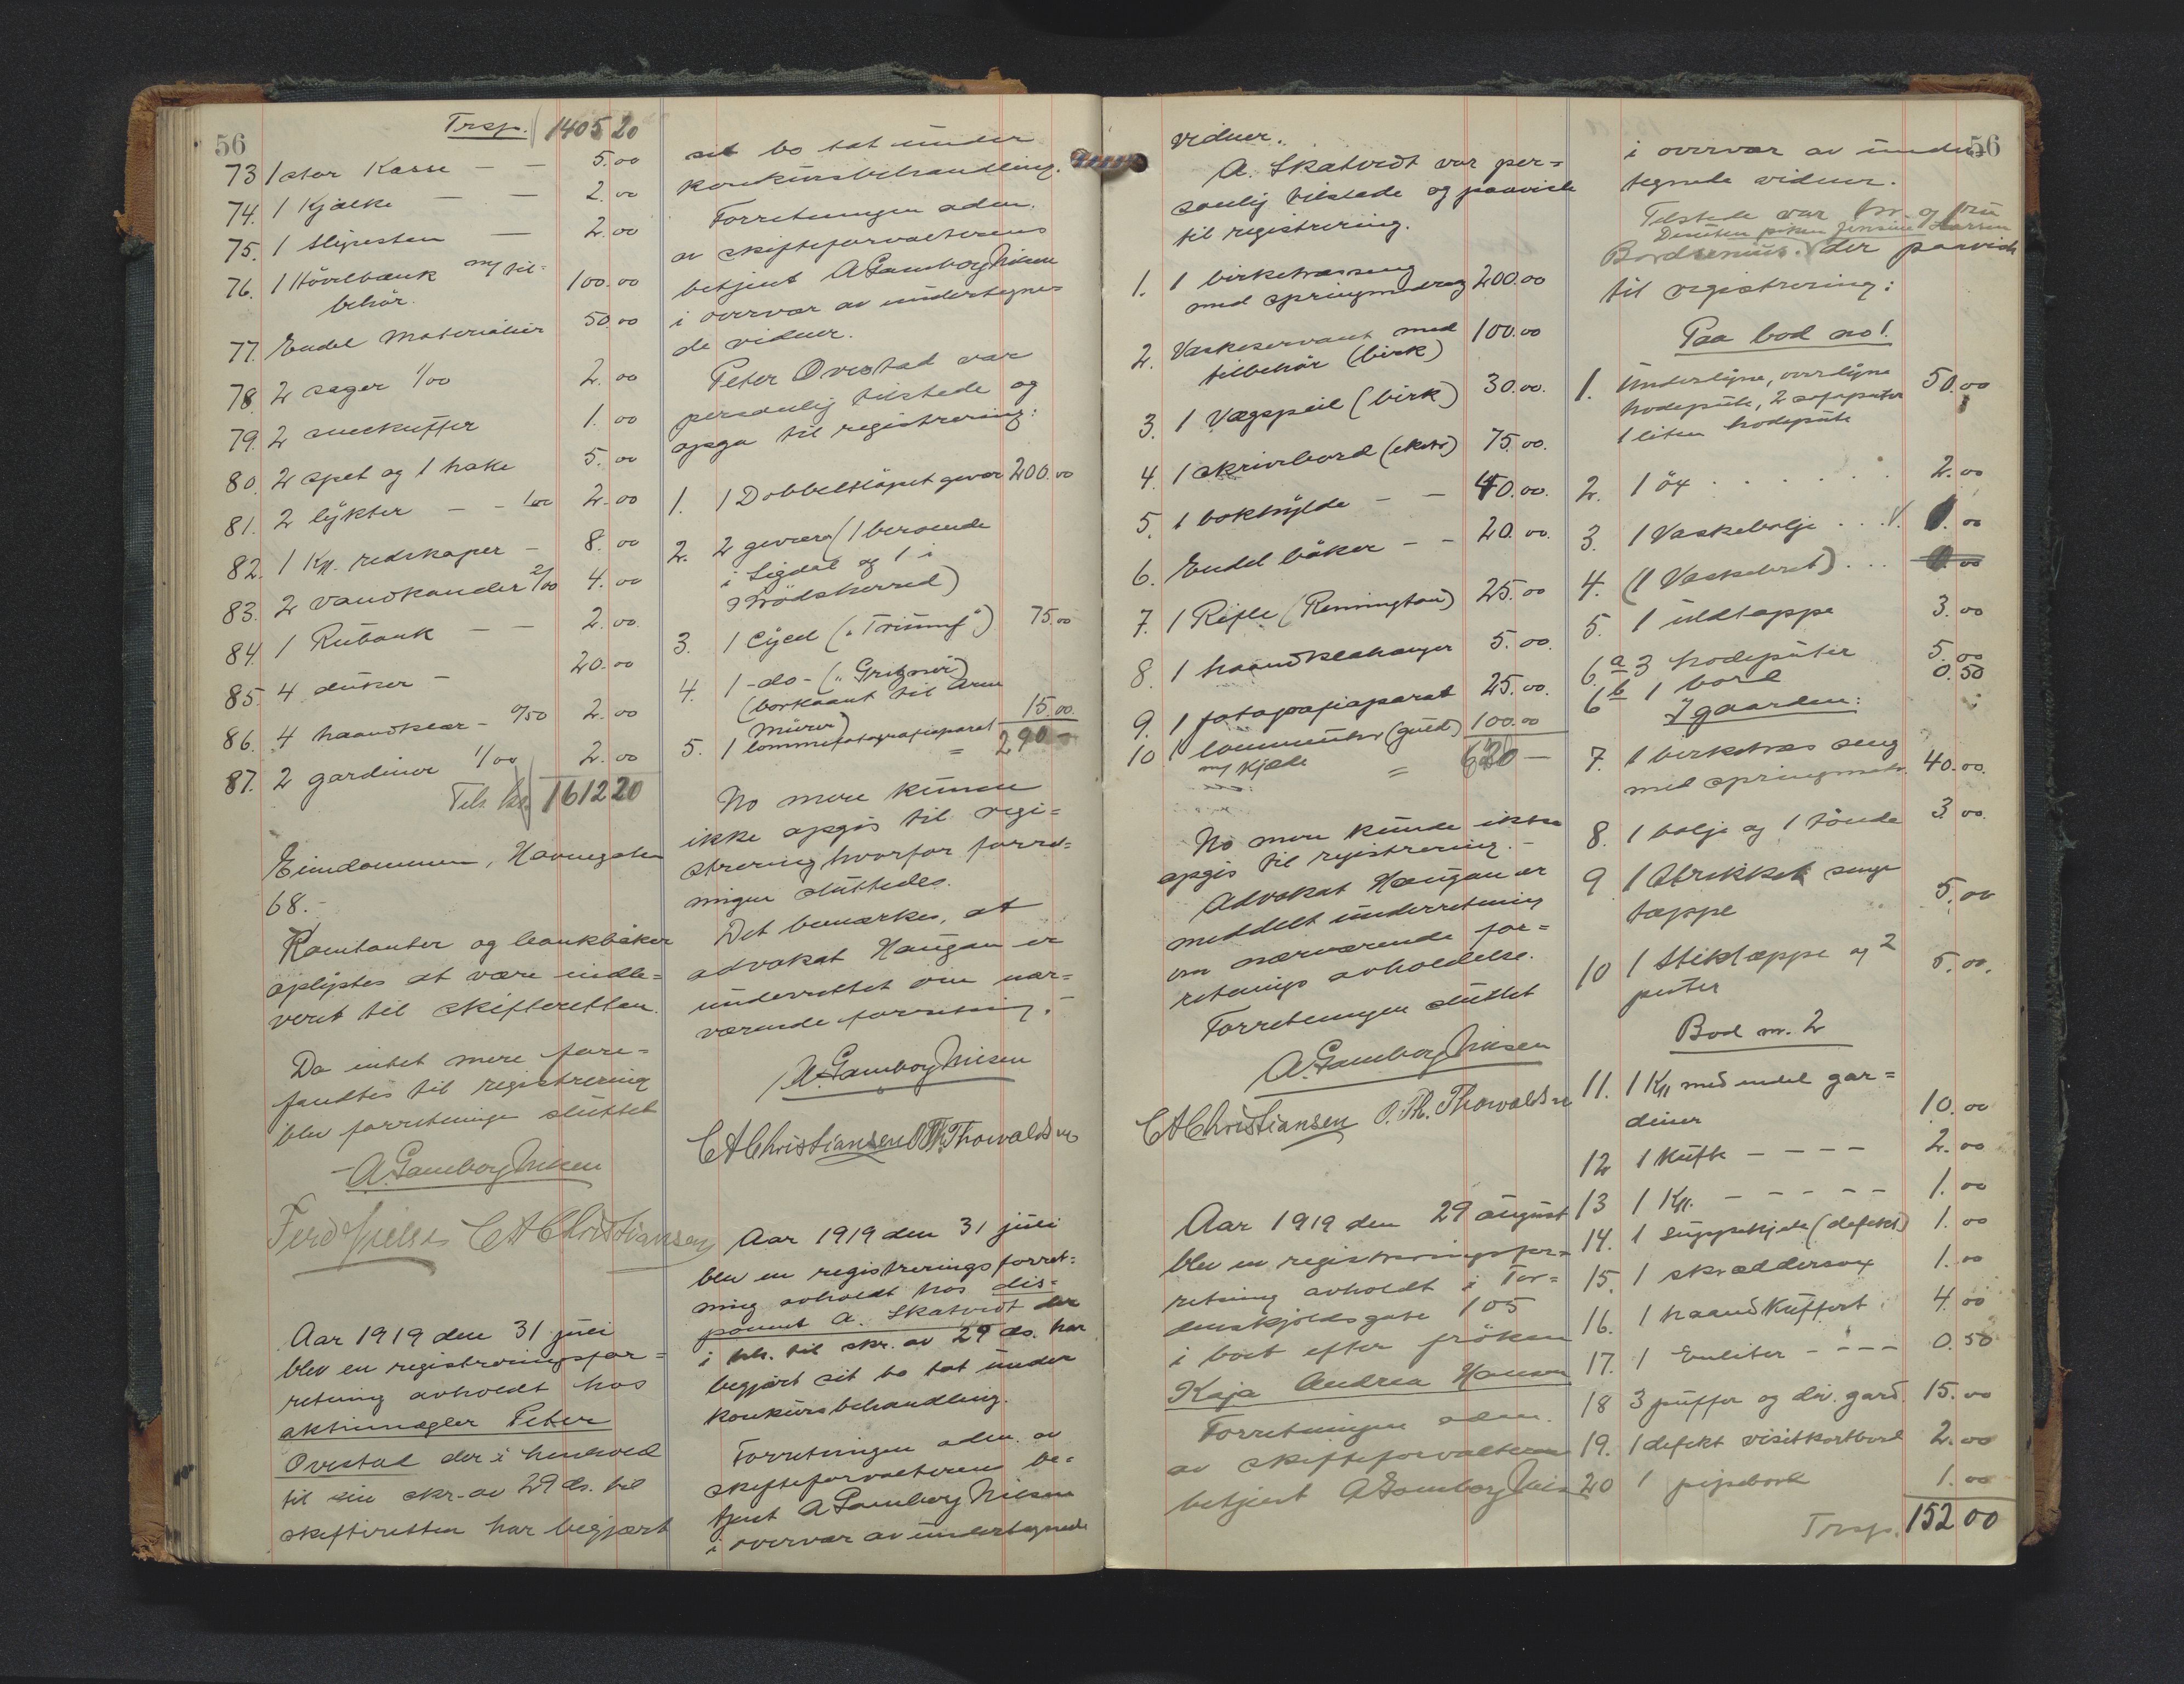 56
Trsp. 1405 20
73 1 stor Kasse - - 5.00
74. 1 Kjælke - - 2.00
75. 1 slipesten - 2.00
76. 1 Hövlbænk m/ til=
behör. 100.00
77. Endel Materialier 50.00
78. 2 sager 1/00 2.00
79. 2 sneskuffer 1.00
80. 2 spet og 1 hake 5.00
81. 2 lykter - - 1/00 2.00
82. 1 Kp. redskaper - 8.00
83. 2 vandkander 2/00 4.00
84. 1 Rubank - - 2.00
85. 4 duker - 20.00
86. 4 haandklær - 0/50 2.00
87. 2 gardiner 1/00 2.00
Tils. kr. 1612 20
Eiendommen, Havnegaten
68.-
Kontanter og bankbøker
oplystes at være indle=
veret til skifteretten.
Da intet mere fore=
fandtes til registrering
blev forretningen sluttet
A. Gamborg Nilsen
CAChristiansen
Aar 1919 den 31 juli
blev en registreringsfor=
retning avholdt hos
aktiemægler Peter
Ovestad der i henhold
til sin skr. av 29 ds. til
skifteretten har begjært
sit bo tat under
konkursbehandling.
Forretningen adm.
av skifteforvalterens
betjent A Gamborg Nilsen
i overvær av undertegne=
de vidner.
Peter Ovestad var
personlig tilstede og
opga til registrering:
1. 1 Dobbeltløpet gevær 200.00
2. 2 geværer (1 beroende
i Sigdal og 1 i
Thrødsherred)
3. 1 Cycel ("Triumf") 75.00
4. 1 -do- ("Gritzner")
(bortlaant til Arne
Mürer)
5. 1 lommefotografiaparat 15.00.
= 290 -
No mere kunne
ikke opgis til regi=
strering hvorfor forret=
ningen sluttedes.
Det bemærkes, at
advokat Haugan er
underrettet om nær=
værende forretning.-
A. Gamborg Nilsen
CAChristiansen O.Th.Thorvaldsen
Aar 1919 den 31 juli
blev en registreringsforret=
ning avholdt hos dis=
ponent A. Skatvedt der
i hh. til skr. av 29 ds. har
begjært sit bo tat under
konkursbehandling.
Forretningen adm. av
skifteforvalterens be=
tjent A Gamborg Nilsen
i overvær av undertegnede
vidner.
A. Skatvedt var per=
sonlig tilstede og paaviste
til registrering.
1. 1 birketræsseng
med springmadras 200.00
2. Vaskeservant med
tilbehör (birk) 100.00
3. 1 Vægspeil (birk) 30.00.
4. 1 skrivebord (eketr) 75.00.
5. 1 bokhylde - - 40.00.
6. Endel böker - - 20.00.
7. 1 Rifle (Remington) 25.00
8. 1 haandklæhænger 5.00.
9. 1 fotografiaparat 25.00.
10 1 lommeuhr (guld) 100.00
m/ kjede = 620 -
No mere kunde ikke
opgis til registrering.-
Advokat Haugan er
meddelt underretning
om nærværende for=
retnings avholdelse.
Forretningen sluttet
A. Gamborg Nilsen
CAChristiansen O.Th. Thorvaldsen
Aar 1919 den 29 august
blev en registreringsfor=
retning avholdt i Tor=
denskjoldsgate 105
i boet efter fröken
Kaja Andrea Hansen
Forretningen adm.
av skifteforvalterens
betjent A Gamborg Nilsen
56
i overvær av under=
tegnede vidner.
Tilstede var hr. og fru
Desuten piken Jensine Larsen
Bordsenius. der paaviste
til registrering:
Paa bod no 1.
1. Underdyne, overdyne
hodepute, 2 sofaputer
1 liten hodepute 50.00
2. 1 öx . . . . . . 2.00
3. 1 Vaskebalje . . . 1.00
4. (1 Vaskebret) . . .
5. 1 uldtæppe 3.00
6.a 3 hodeputer 5.00
6b 1 bord 0.50
I gaarden:
7. 1 birketræs seng
med springmadr. 40.00.
8. 1 balje og 1 tönde 3.00.
9 1 strikket senge
tæppe 5.00
10 1 Stiktæppe og 2
puter 5.00.
Bod nr. 2
11. 1 Kp med endel gar=
diner 10.00
12 1 Kufte - - - - 2.00
13 1 Kp. - - - - - 1.00
14. 1 suppekjele (defekt) 1.00
15. 1 skræddersax 1.00
16. 1 haandkuffert 4.00
17. 1 Enliter - - - - 0.50
18 3 puffer og div. gard. 15.00
19. 1 defekt visitkortbord 2.00
20 1 pipebord 1.00
Trsp. 152 00